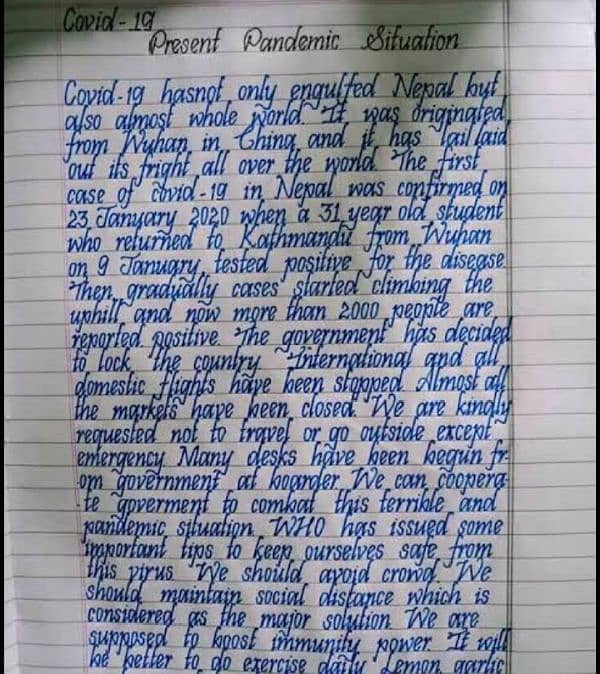 Covid-19
Present Pandemic Situation
Covid-19 hasnot only engulfed Nepal but
also almost whole world. It was originated
from Wuhan in China and it has tail laid
out its fright all over the world. The first
case of covid-19 in Nepal was confirmed on
23 January 2020 when a 31 year old student
who returned to Kathmandu from Wuhan
on 9 January, tested positive for the disease.
Then gradually cases started climbing the
uphill and now more than 2000 people are
reported positive. The government has decided
to lock the country. International and all
domestic flights have been stopped. Almost all
the markets have been closed. We are kindly
requested not to travel or go outside except
emergency. Many desks have been begun fr-
om government at boarder. We can coopera-
te goverment to combat this terrible and
pandemic situation. WHO has issued some
important tips to keep ourselves safe from
this virus. We should avoid crowd. We
should maintain social distance which is
considered as the major solution. We are
suppposed to boost immunity power. It will
be better to do exercise daily. Lemon, garlic